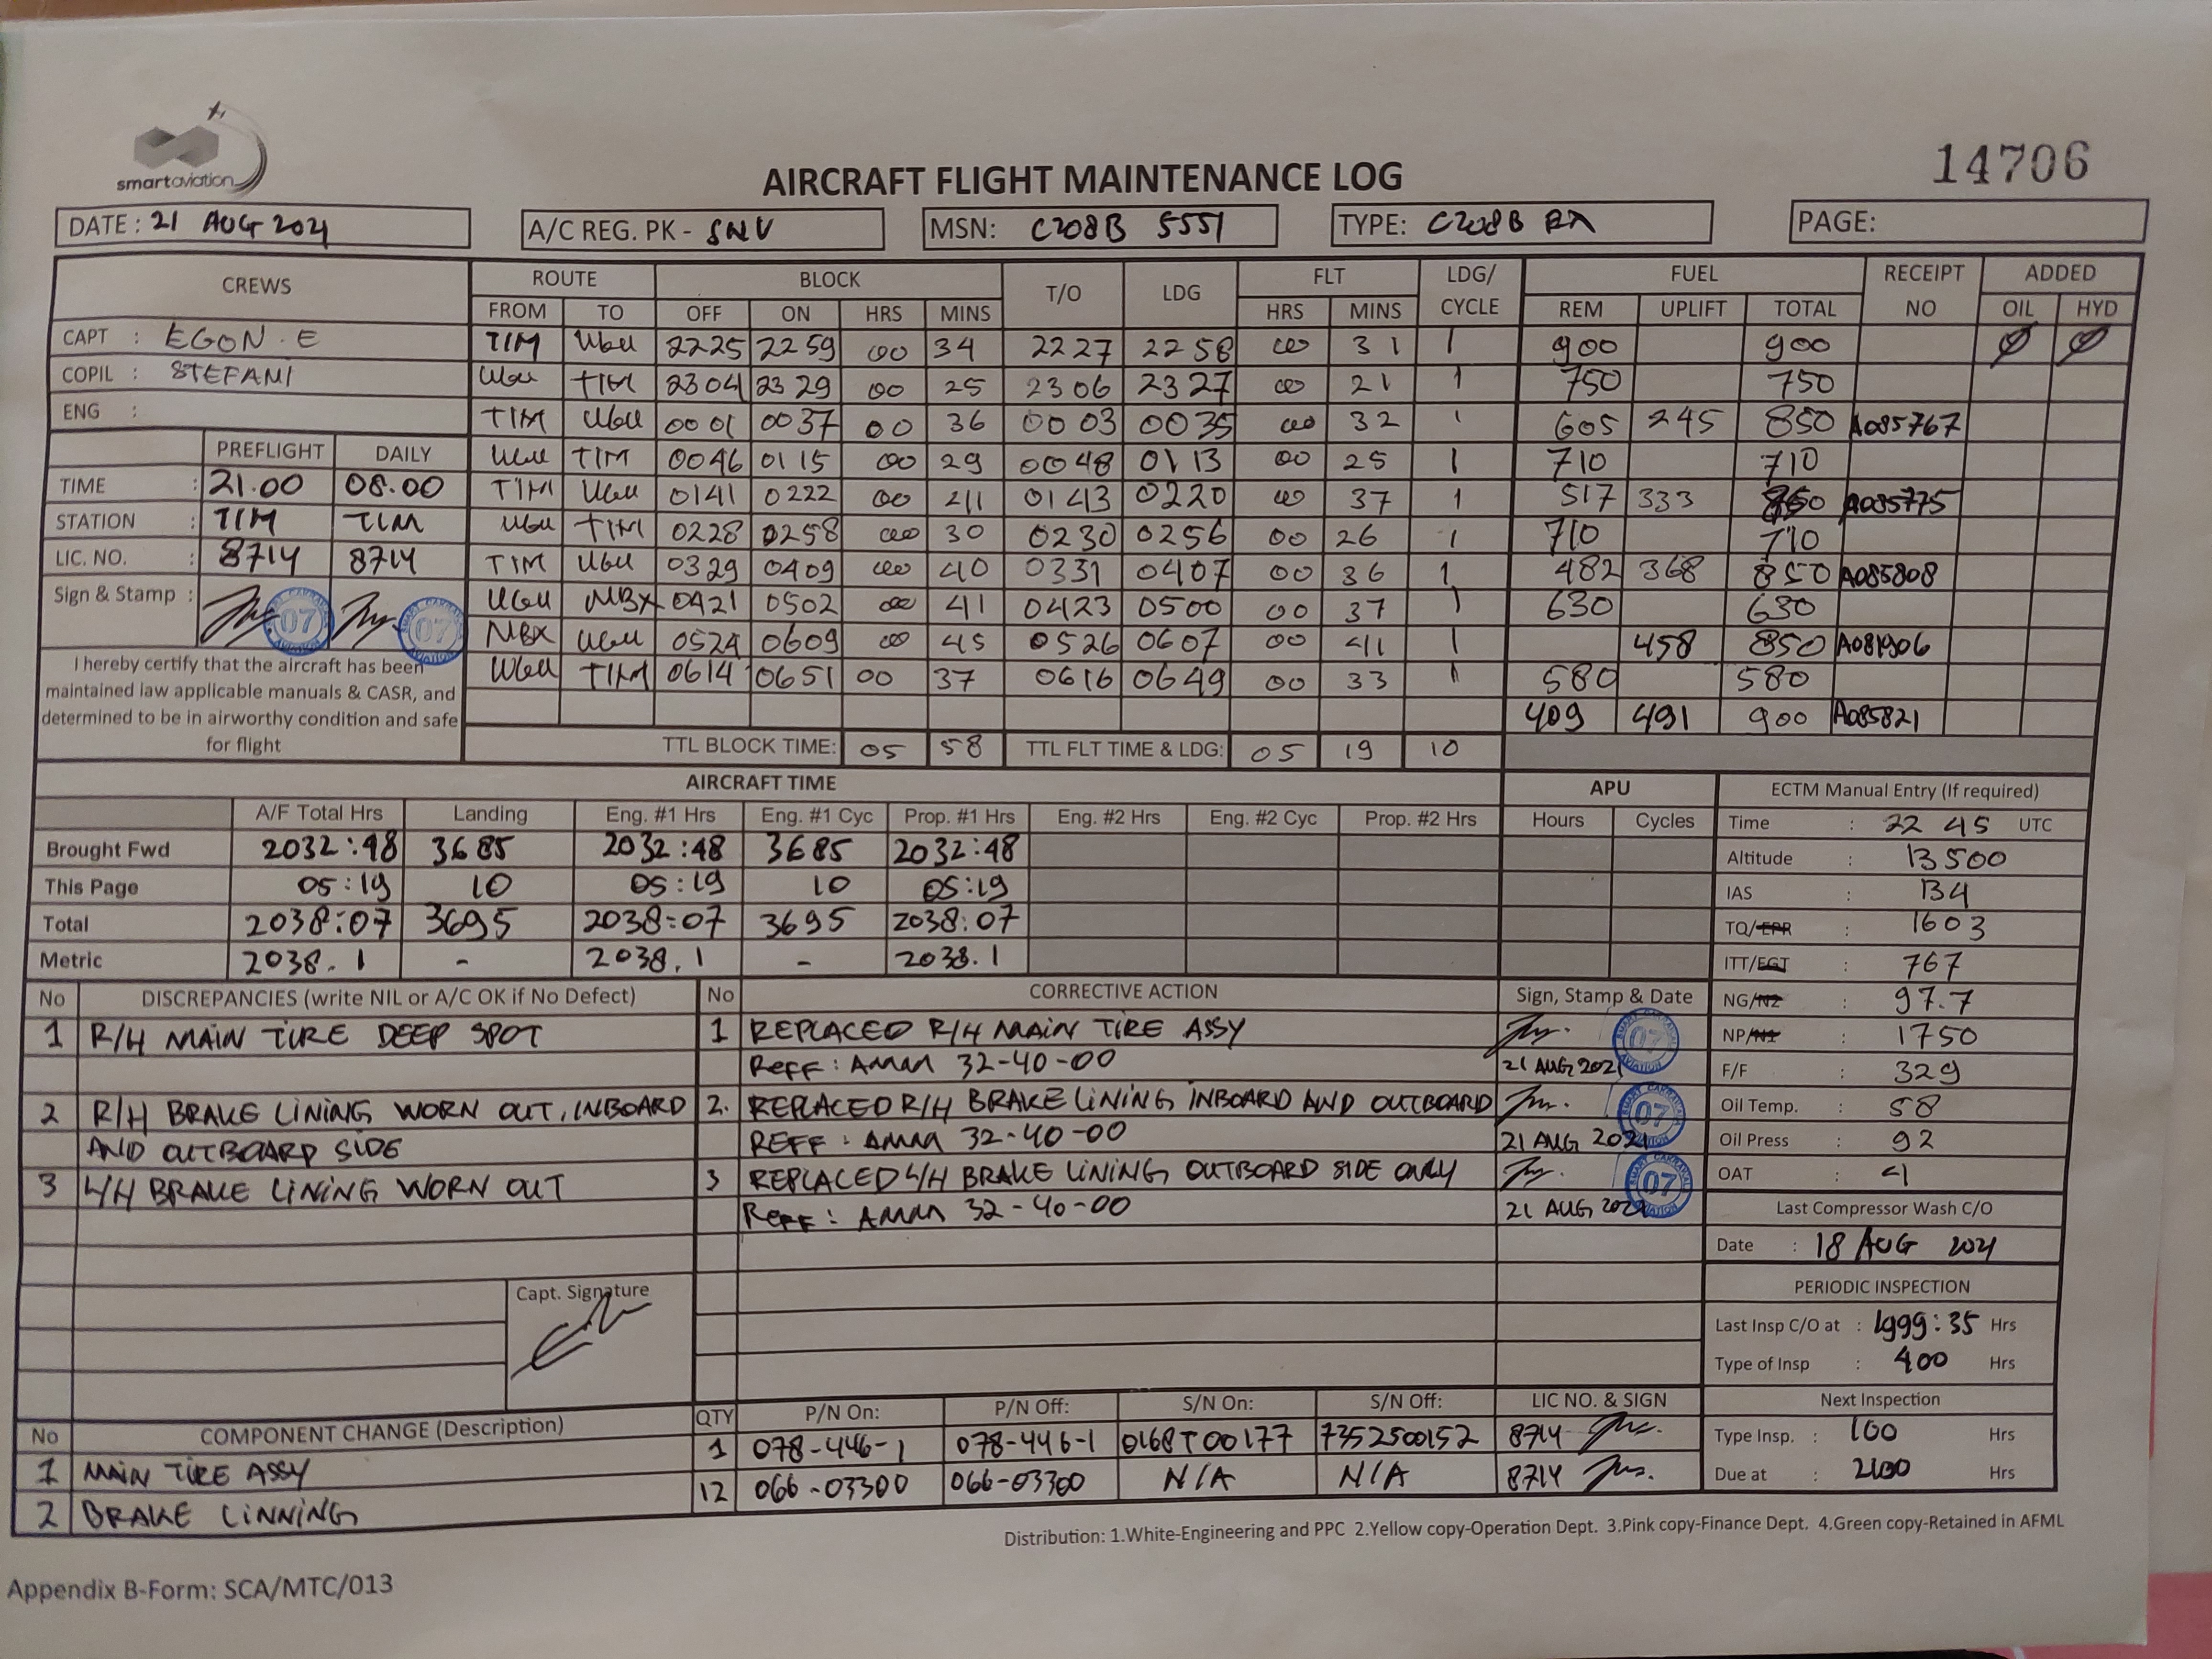 smartaviation
14706
AIRCRAFT FLIGHT MAINTENANCE LOG
DATE : 21 AUG 2021 A/C REG. PK - SNV MSN: C208B 5551 TYPE: C208B EX PAGE:
CREWS ROUTE BLOCK T/O LDG FLT LDG/ CYCLE FUEL RECEIPT NO ADDED
FROM TO OFF ON HRS MINS HRS MINS REM UPLIFT TOTAL OIL HYD
CAPT : EGON . E
COPIL : STEFANI
ENG :
TIM UGU 2225 2259 00 34 2227 2258 00 31 1 900 900 Ø Ø
UGU TIM 2304 2329 00 25 2306 2327 00 21 1 750 750
TIM UGU 0001 0037 00 36 0003 0035 00 32 1 605 245 850 A085767
UGU TIM 0046 0115 00 29 0048 0113 00 25 1 710 710
TIM UGU 0141 0222 00 41 0143 0220 00 37 1 517 333 850 A085775
UGU TIM 0228 0258 00 30 0230 0256 00 26 1 710 710
TIM UGU 0329 0409 00 40 0331 0407 00 36 1 482 368 850 A085808
UGU NBX 0421 0502 00 41 0423 0500 00 37 1 630 630
NBX UGU 0524 0609 00 45 0526 0607 00 41 1 458 850
UGU TIM 0614 0651 00 37 0616 0649 00 33 1 580 580
409 491 900 A085821
PREFLIGHT DAILY
TIME : 21.00 08.00
STATION : TIM TIM
LIC. NO. : 8714 8714
Sign & Stamp : 07 07
I hereby certify that the aircraft has been
maintained iaw applicable manuals & CASR, and
determined to be in airworthy condition and safe
for flight
TTL BLOCK TIME: 05 58 TTL FLT TIME & LDG: 05 19 10
AIRCRAFT TIME APU
A/F Total Hrs Landing Eng. #1 Hrs Eng. #1 Cyc Prop. #1 Hrs Eng. #2 Hrs Eng. #2 Cyc Prop. #2 Hrs Hours Cycles
Brought Fwd 2032:48 3685 2032:48 3685 2032:48
This Page 05:19 10 05:19 10 05:19
Total 2038:07 3695 2038:07 3695 2038:07
Metric 2038.1 - 2038.1 - 2038.1
ECTM Manual Entry (If required)
Time : 22 45 UTC
Altitude : 13500
IAS : 134
TQ/EPR : 1603
ITT/EGT : 767
NG/N2 : 97.7
NP/N1 : 1750
F/F : 329
Oil Temp. : 58
Oil Press : 92
OAT :
Last Compressor Wash C/O
Date : 18 AUG 2021
PERIODIC INSPECTION
Last Insp C/O at : 1999:35 Hrs
Type of Insp : 400 Hrs
Next Inspection
Type Insp. : 100 Hrs
Due at : 2100 Hrs
No DISCREPANCIES (write NIL or A/C OK if No Defect) No CORRECTIVE ACTION Sign, Stamp & Date
1 R/H MAIN TIRE DEEP SPOT 1 REPLACED R/H MAIN TIRE ASSY
REFF : AMM 32-40-00 21 AUG 2021 07
2 R/H BRAKE LINING WORN OUT, INBOARD 2. REPLACED R/H BRAKE LINING INBOARD AND OUTBOARD
AND OUTBOARD SIDE REFF : AMM 32-40-00 21 AUG 2021 07
3 L/H BRAKE LINING WORN OUT 3 REPLACED L/H BRAKE LINING OUTBOARD SIDE ONLY
REFF : AMM 32-40-00 21 AUG 2021 07
Capt. Signature
No COMPONENT CHANGE (Description) QTY P/N On: P/N Off: S/N On: S/N Off: LIC NO. & SIGN
1 MAIN TIRE ASSY 1 078-446-1 078-446-1 0168T00177 7352500152 8714
2 BRAKE LINNING 12 066-03300 066-03300 N/A N/A 8714
Distribution: 1.White-Engineering and PPC 2.Yellow copy-Operation Dept. 3.Pink copy-Finance Dept. 4.Green copy-Retained in AFML
Appendix B-Form: SCA/MTC/013